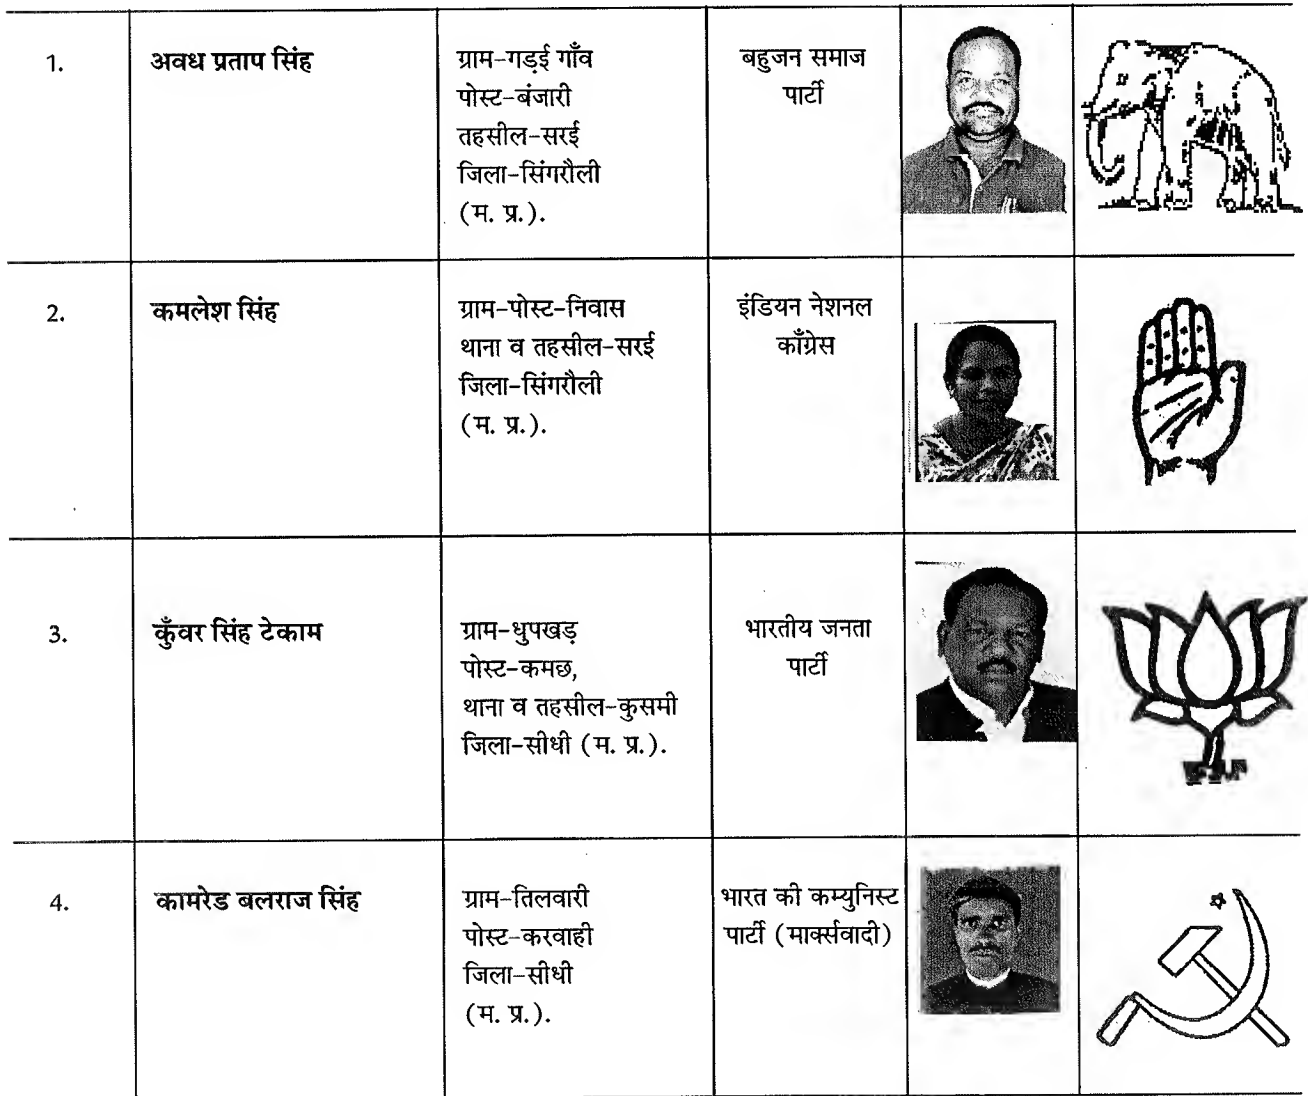 1.
अवध प्रताप सिंह
ग्राम-गड़ई गाँव
पोस्ट-बंजारी
तहसील-सरई
जिला-सिंगरौली
(म. प्र.).
बहुजन समाज
पार्टी
2.
कमलेश सिंह
ग्राम-पोस्ट-निवास
थाना व तहसील-सरई
जिला-सिंगरौली
(म. प्र.).
इंडियन नेशनल
काँग्रेस
3.
कुँवर सिंह टेकाम
ग्राम-धुपखड़
पोस्ट-कमछ,
थाना व तहसील-कुसमी
जिला-सीधी (म. प्र.).
भारतीय जनता
पार्टी
4.
कामरेड बलराज सिंह
ग्राम-तिलवारी
पोस्ट-करवाही
जिला-सीधी
(म. प्र.).
भारत की कम्युनिस्ट
पार्टी (मार्क्सवादी)